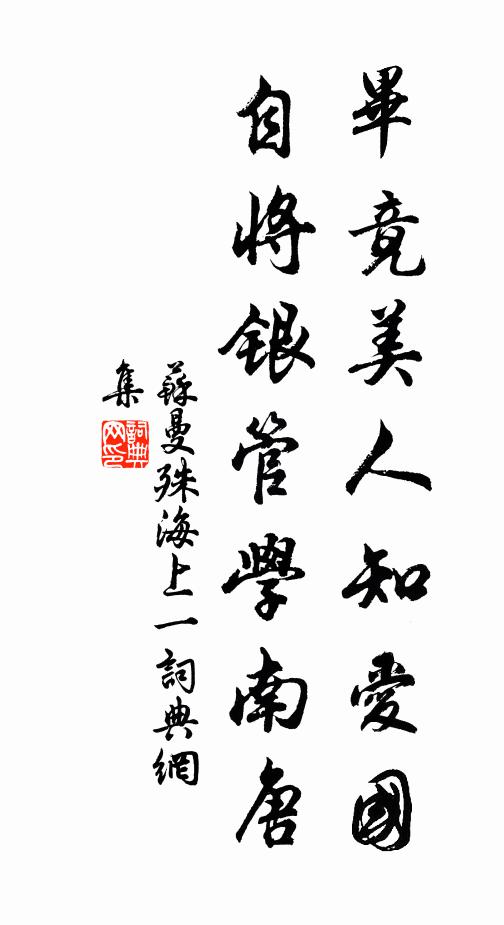 畢竟美人知愛國
自將銀管學南唐
蘇曼殊海上一詞典網
集
詞典网印